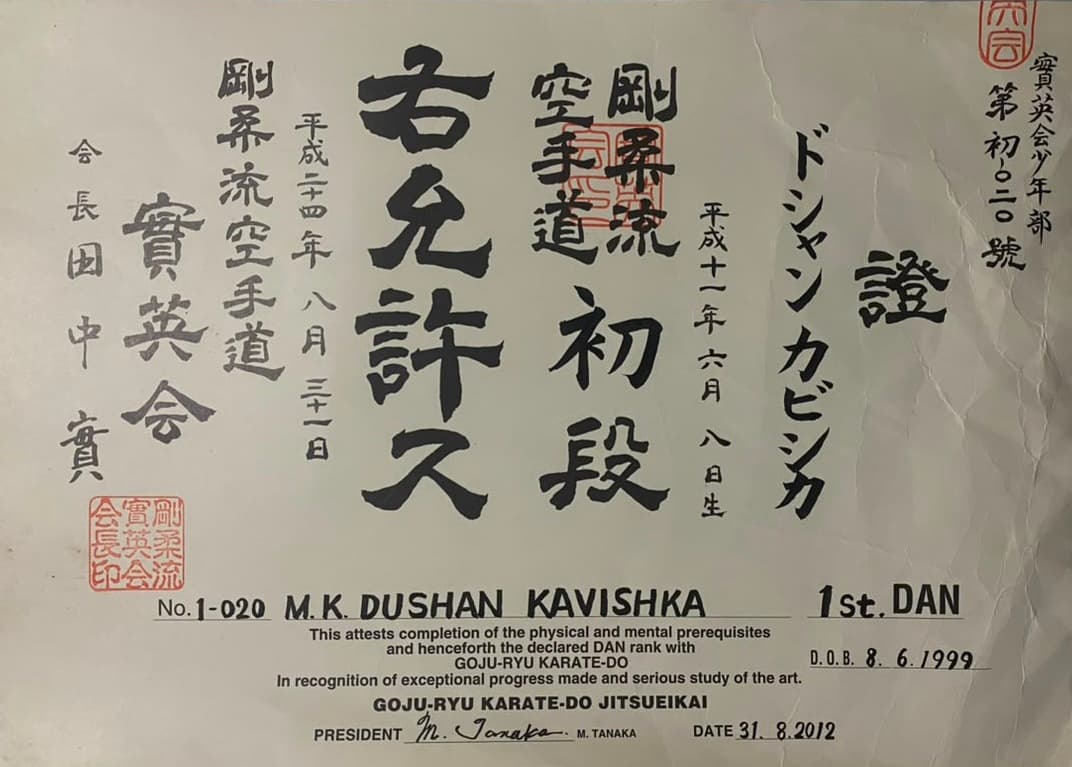 實英会少年部
第初-〇二〇號
證
ドシャン カビシカ
平成十一年六月八日生
剛柔流
空手道
初段
右允許ス
平成二十四年八月三十一日
剛柔流空手道
實英会
会長田中實
剛柔流
實英会
会長印
No. 1-020 M.K. DUSHAN KAVISHKA 1st. DAN
This attests completion of the physical and mental prerequisites
and henceforth the declared DAN rank with
GOJU-RYU KARATE-DO
In recognition of exceptional progress made and serious study of the art.
D.O.B. 8. 6. 1999
GOJU-RYU KARATE-DO JITSUEIKAI
PRESIDENT M. Tanaka M. TANAKA DATE 31. 8.2012